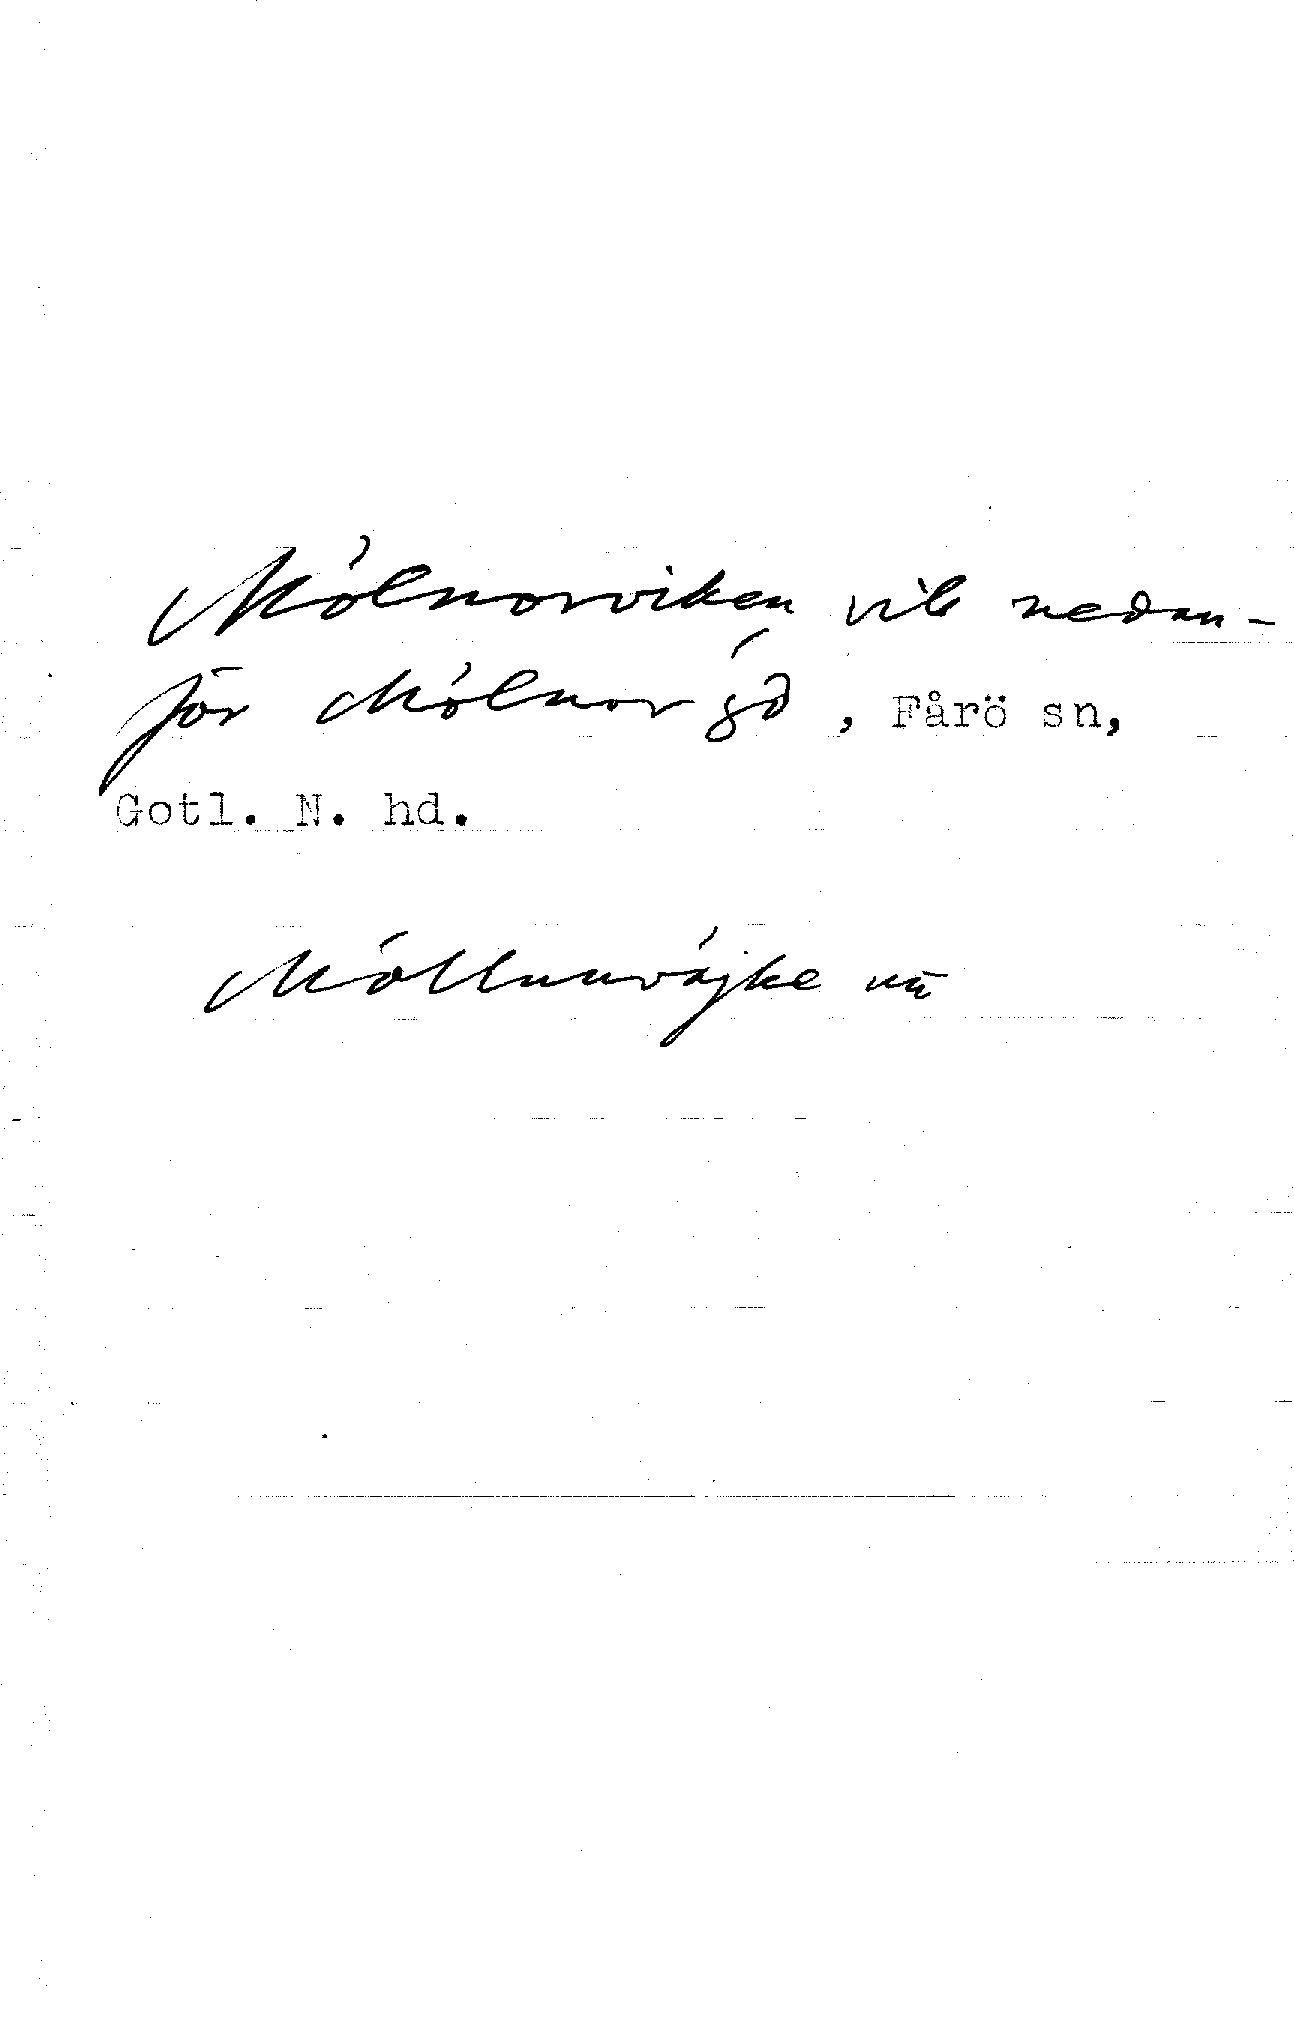 Mólnorviken vik nedan-
för Mólnor gd, Fårö sn,
Gotl. N. hd.
Móllnurvájke